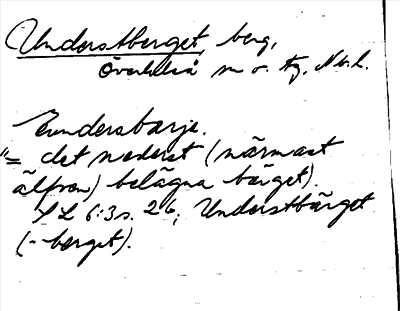 Understberget, berg,
Överkalix
Eundersbarje.
"= det nederst (närmast
älfven) belägna berget).
SL 6:3 s. 26; Understbärget
(-berget).